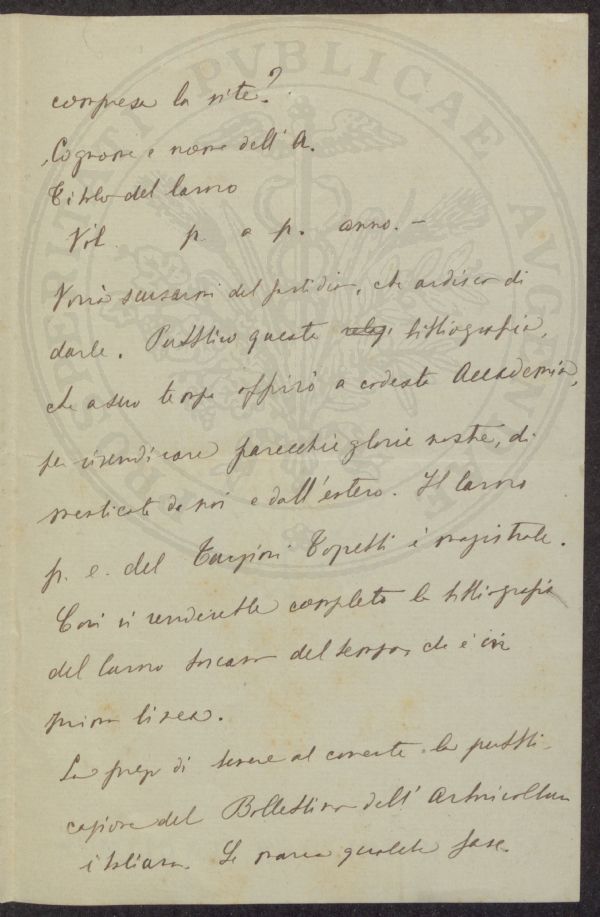 compresa la vite?
Cognome e nome dell'A.
Titolo del lavoro
Vol. p. a p. anno. —
Vorrà scusarmi del fastidio, che ardisco di
darle. Pubblico questa bibliografia,
che a suo tempo offrirò a codesta Accademia,
per rivendicare parecchie glorie nostre, di
menticate da noi e dall'estero. Il lavoro
p. e. del Targioni Tozzetti è magistrale.
Così si renderebbe completa la bibliografia
del lavoro toscano del tempo, che è in
prima linea.
La prego di tenere al corrente la pubbli-
cazione del Bollettino dell'Arboricoltura
italiana. Le manca qualche fasc.
PVBLICAE